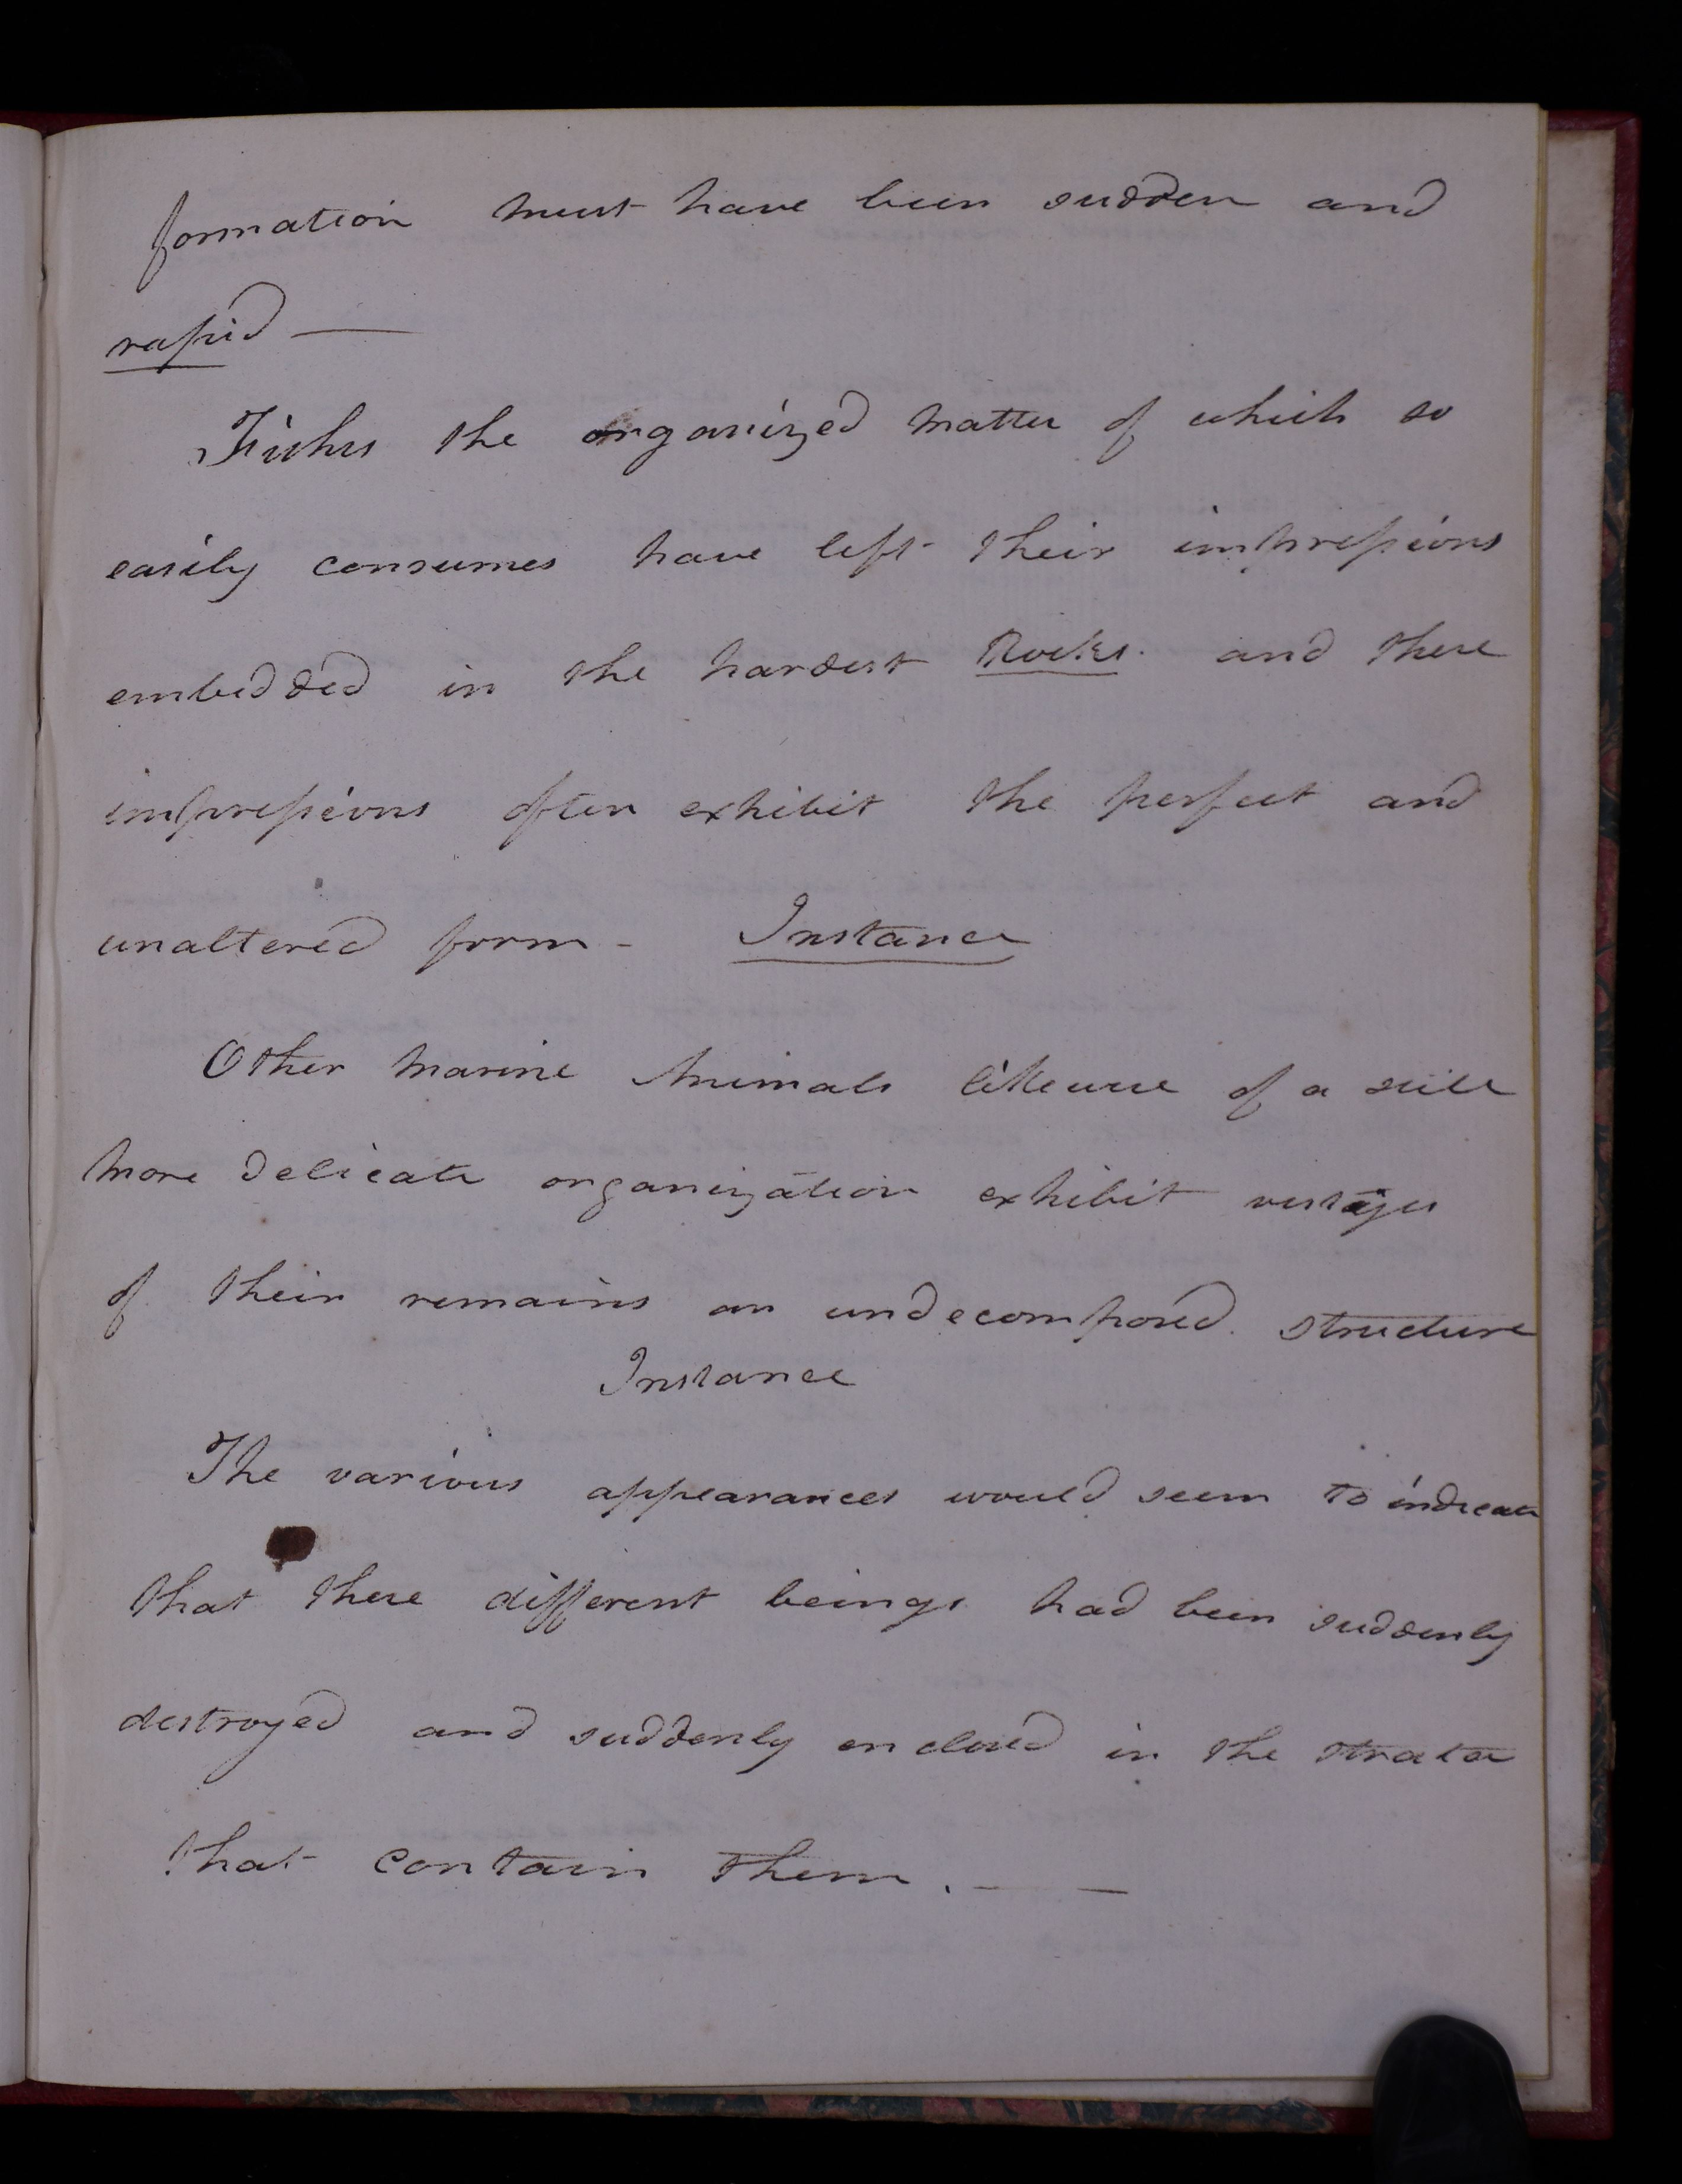 formation must have been sudden and
rapid —
Fishes the organized matter of which so
easily consumes have left their impressions
embedded in the hardest Rocks. and these
impressions often exhibit the perfect and
unaltered form - Instance
Other marine Animals likewise of a still
more delicate organization exhibit vestiges
of their remains an undecomposed structure
Instance
The various appearances would seem to indicate
that these different beings had been suddenly
destroyed and suddenly enclosed in the strata
that contain them. — —